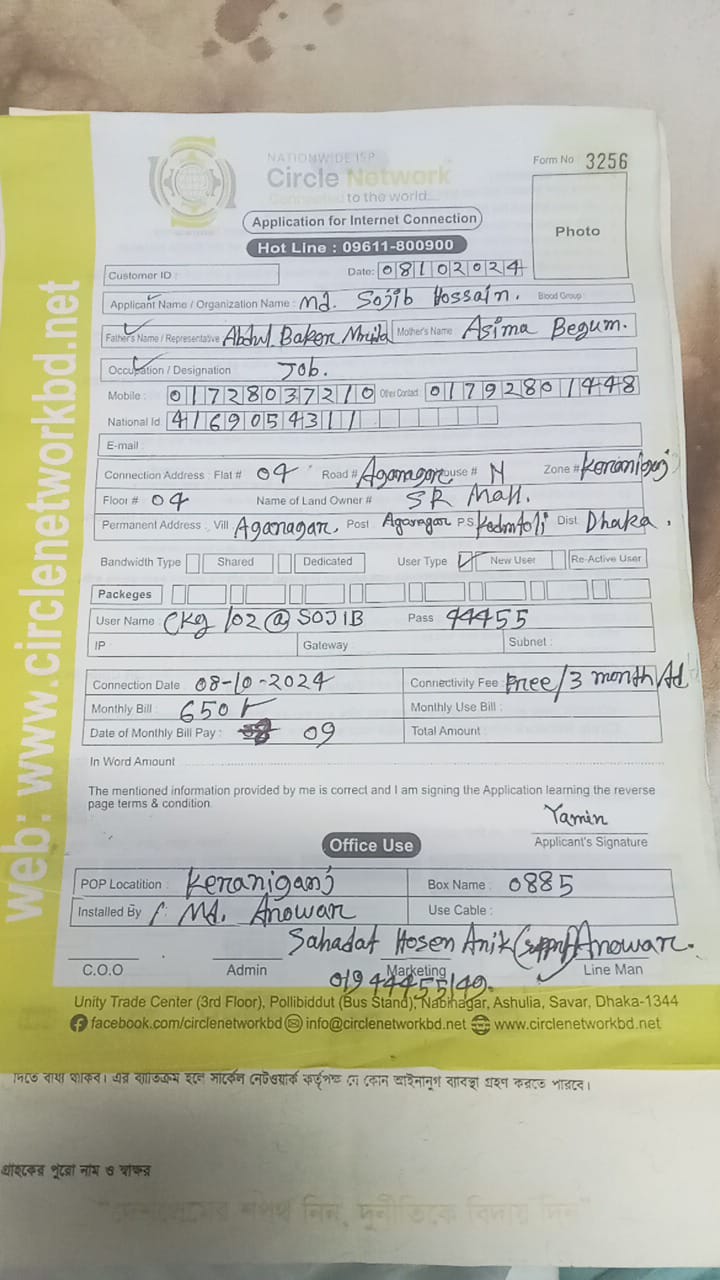 NATIONWIDE ISP
Circle Network
Connected to the world....
Form No 3256
Photo
Application for Internet Connection
Hot Line : 09611-800900
Customer ID :
Date: 08102024
Applicant Name / Organization Name : Md. Sojib Hossain. Blood Group :
Father's Name / Representative Abdul Baker Mother's Name : Asima Begum.
Occupation / Designation Job.
Mobile : 01728037210 Other Contact 01792801448
National Id 4169054311
E-mail
Connection Address : Flat # 04 Road # Aganagar House # N Zone # Keraniganj
Floor # 04 Name of Land Owner # SR Mall.
Permanent Address : Vill Aganagar, Post Aganagar P.S Kadmtoli Dist Dhaka.
Bandwidth Type Shared Dedicated User Type New User Re-Active User
Packeges
User Name : CKg 102@SOJIB Pass 44455
IP Gateway Subnet :
Connection Date 08-10-2024 Connectivity Fee : Free/3 month Ad
Monthly Bill : 650 Monthly Use Bill :
Date of Monthly Bill Pay : 09 Total Amount :
In Word Amount
The mentioned information provided by me is correct and I am signing the Application learning the reverse
page terms & condition.
Yamin
Applicant's Signature
Office Use
POP Locatition : Keraniganj Box Name : 0885
Installed By Md. Anowar Use Cable :
Sahadat Hosen Anik Anowar.
C.O.O Admin Marketing Line Man
01944455149.
Unity Trade Center (3rd Floor), Pollibiddut (Bus Stand), Nabinagar, Ashulia, Savar, Dhaka-1344
facebook.com/circlenetworkbd info@circlenetworkbd.net www.circlenetworkbd.net
web: www.circlenetworkbd.net
দিতে বাধ্য থাকিব। এর ব্যতিক্রম হলে সার্কেল নেটওয়ার্ক কর্তৃপক্ষ যে কোন আইনানুগ ব্যবস্থা গ্রহণ করতে পারবে।
গ্রাহকের পুরো নাম ও স্বাক্ষর
"দেশপ্রেমের শপথ নিন, দুর্নীতিকে বিদায় দিন"